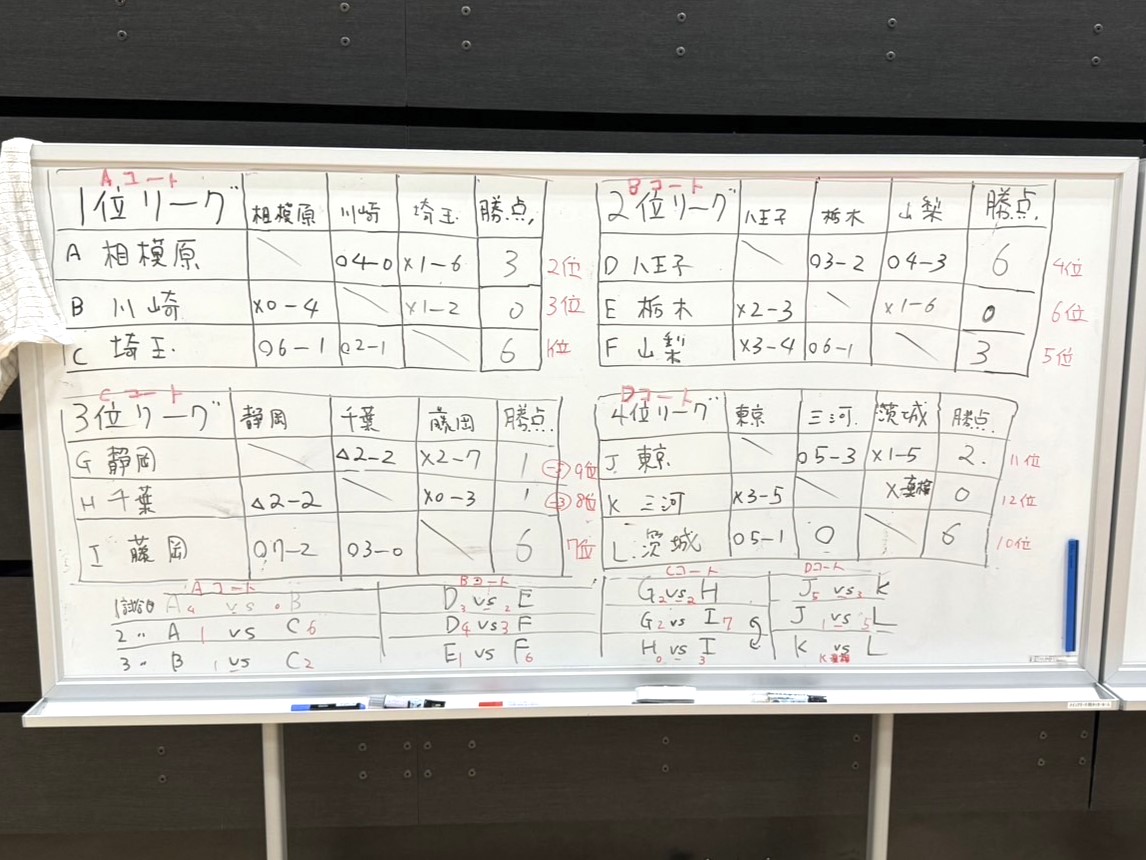 Aコート
1位リーグ 相模原 川崎 埼玉 勝点
A 相模原 ○4-0 ×1-6 3 2位
B 川崎 ×0-4 ×1-2 0 3位
C 埼玉 ○6-1 ○2-1 6 1位
Bコート
2位リーグ 八王子 栃木 山梨 勝点
D 八王子 ○3-2 ○4-3 6 4位
E 栃木 ×2-3 ×1-6 0 6位
F 山梨 ×3-4 ○6-1 3 5位
Cコート
3位リーグ 静岡 千葉 藤岡 勝点
G 静岡 △2-2 ×2-7 1 -5 9位
H 千葉 △2-2 ×0-3 1 -3 8位
I 藤岡 ○7-2 ○3-0 6 7位
Dコート
4位リーグ 東京 三河 茨城 勝点
J 東京 ○5-3 ×1-5 2. 11位
K 三河 ×3-5 × 棄権 0 12位
L 茨城 ○5-1 ○ 6 10位
Aコート
1試合目 A 4 vs 0 B
2〃 A 1 vs C 6
3〃 B 1 vs C 2
Bコート
D 3 vs 2 E
D 4 vs 3 F
E 1 vs F 6
Cコート
G 2 vs 2 H
G 2 vs I 7
H 0 vs I 3
Dコート
J 5 vs 3 K
J 1 vs 5 L
K vs L
K棄権